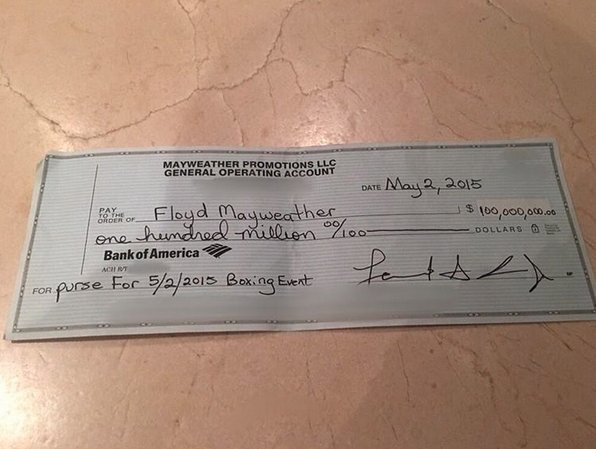 MAYWEATHER PROMOTIONS LLC
GENERAL OPERATING ACCOUNT
DATE May 2, 2015
PAY TO THE ORDER OF Floyd Mayweather $ 100,000,000.00
one hundred million 00/100 DOLLARS
Bank of America
ACH R/T
FOR purse For 5/2/2015 Boxing Event